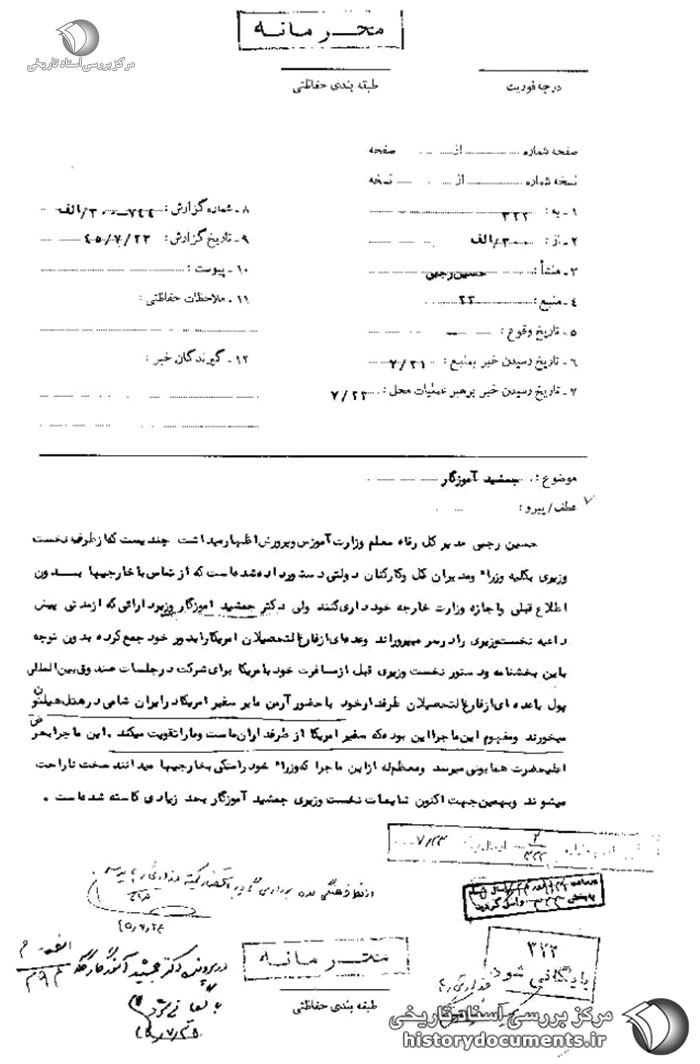 محرمانه
مرکز بررسی اسناد تاریخی
درجه فوریت
طبقه بندی حفاظتی
صفحه شماره ........ از ........ صفحه
نسخه شماره ........ از ........ نسخه
۱ - به : ۳۲۲
۲ - از : ۳۰۰/الف
۳ - منشأ : حسین رجبی
۴ - منبع : ۲۳
۵ - تاریخ وقوع :
۶ - تاریخ رسیدن خبر بمنبع : ۷/۲۱
۷ - تاریخ رسیدن خبر برهبر عملیات محل : ۷/۲۳
۸ - شماره گزارش : ۷۴۴-۳۰۰/الف
۹ - تاریخ گزارش : ۴۵/۷/۲۳
۱۰ - پیوست :
۱۱ - ملاحظات حفاظتی :
۱۲ - گیرندگان خبر :
موضوع : جمشید آموزگار
عطف/پیرو :
حسین رجبی مدیر کل رفاه معلم وزارت آموزش و پرورش اظهار میداشت چندیست که از طرف نخست
وزیری بکلیه وزراء و مدیران کل و کارکنان دولتی دستور داده شده است که از تماس با خارجیها بدون
اطلاع قبلی و اجازه وزارت خارجه خودداری کنند ولی دکتر جمشید آموزگار وزیر دارائی که از مدتی پیش
داعیه نخست وزیری را در سر میپروراند و عده ای از فارغ التحصیلان امریکا را بدور خود جمع کرده بدون توجه
باین بخشنامه و دستور نخست وزیری قبل از مسافرت خود بامریکا برای شرکت در جلسات صندوق بین المللی
پول با عده ای از فارغ التحصیلان طرفدار خود با حضور آرمین مایر سفیر امریکا در ایران شامی در هتل هیلتون
میخورند و مفهوم این ماجرا این بوده که سفیر امریکا از طرفداران ماست و ما را تقویت میکند . این ماجرا بعرض
اعلیحضرت همایونی میرسد و معظم له از این ماجرا که وزراء خود را متکی بخارجیها میدانند سخت ناراحت
میشوند و بهمین جهت اکنون شایعات نخست وزیری جمشید آموزگار بحد زیادی کاسته شده است .
۷/۲۳
در پرونده دکتر جمشید آموزگار
محرمانه
طبقه بندی حفاظتی
۳۲۲
بایگانی شود
مرکز بررسی اسناد تاریخی
historydocuments.ir